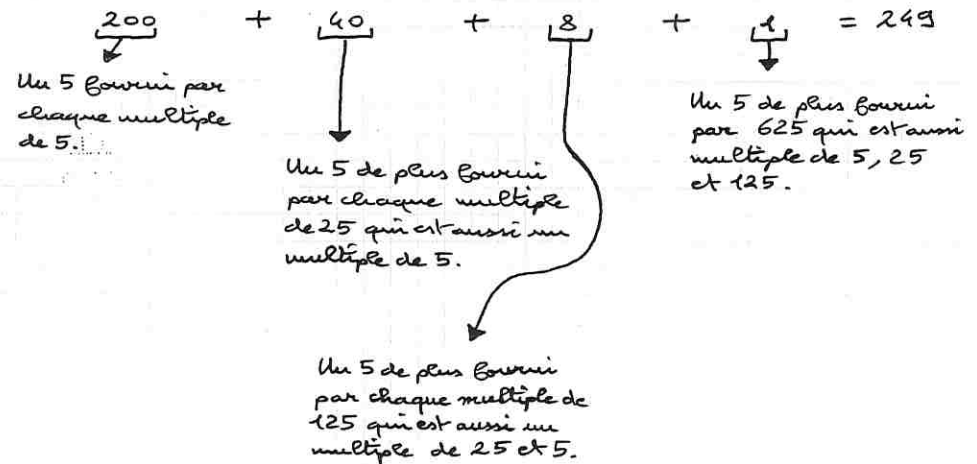 200 + 40 + 8 + 1 = 249
Un 5 fourni par
chaque multiple
de 5.
Un 5 de plus fourni
par chaque multiple
de 25 qui est aussi un
multiple de 5.
Un 5 de plus fourni
par chaque multiple de
125 qui est aussi un
multiple de 25 et 5.
Un 5 de plus fourni
par 625 qui est aussi
multiple de 5, 25
et 125.